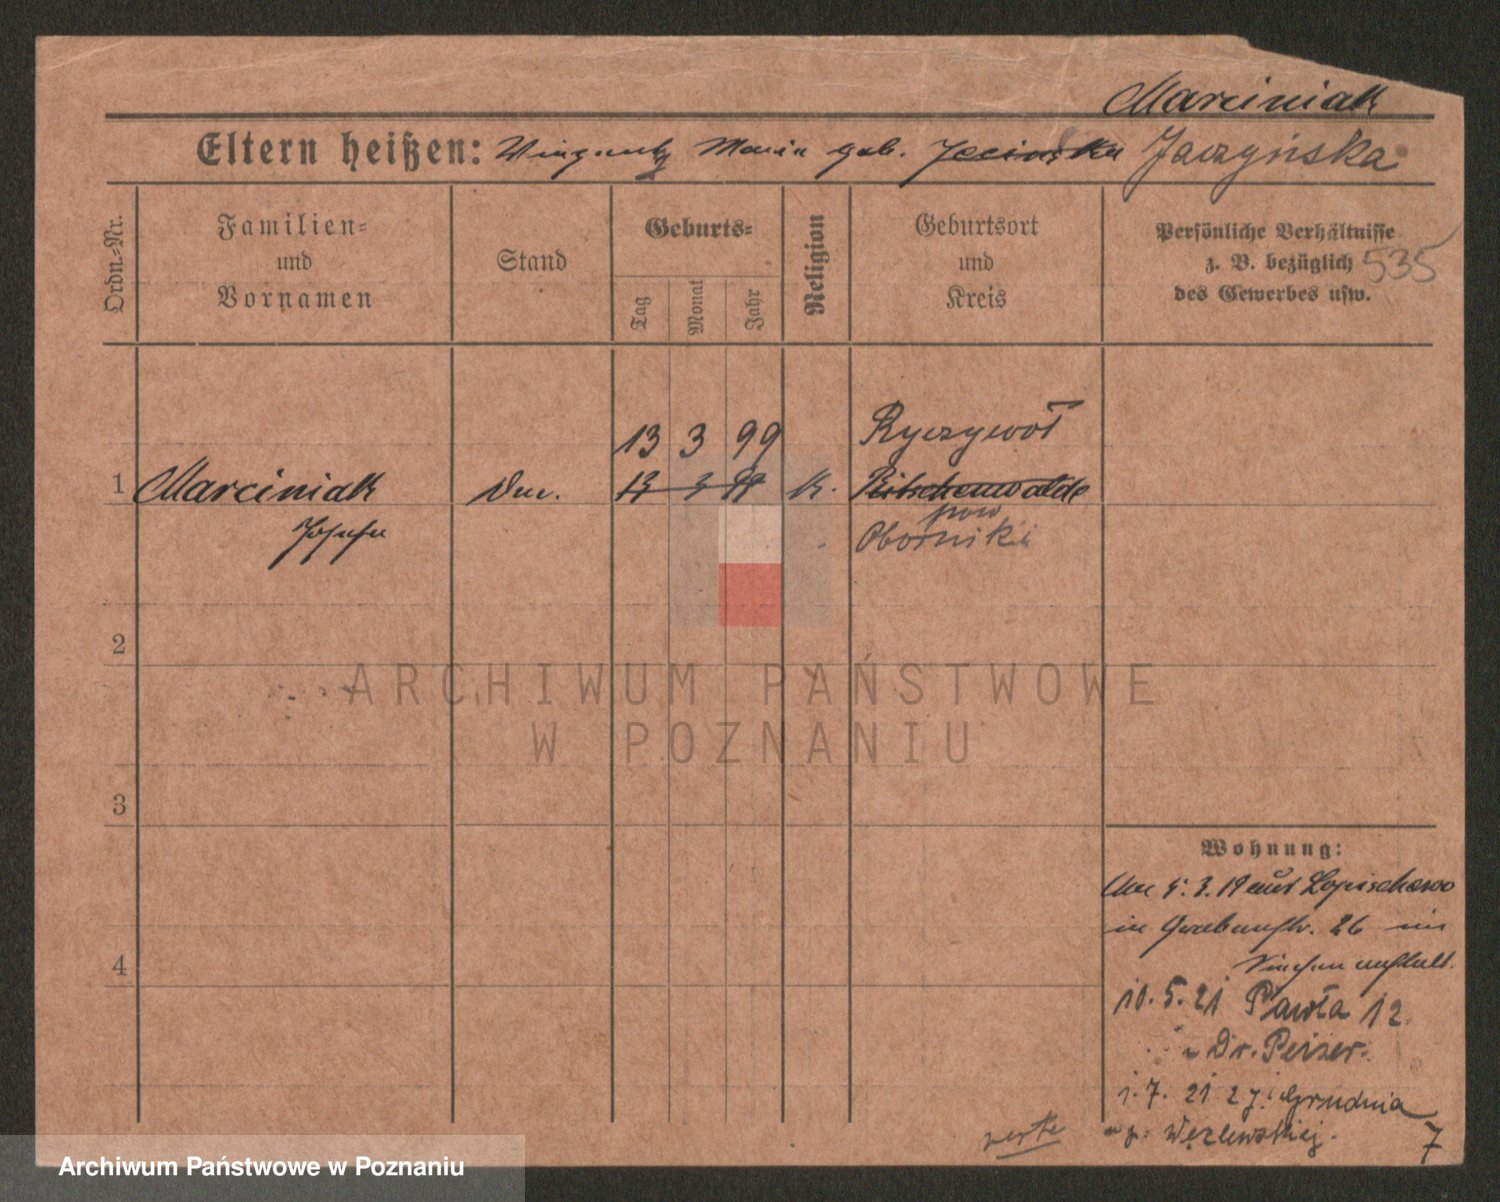 Marciniak
Eltern heißen: Maria geb. Jaczyńska
Ordn.-Nr.
Familien-
und
Vornamen
Stand
Geburts-
Tag
Monat
Jahr
Religion
Geburtsort
und
Kreis
Persönliche Verhältnisse
z. B. bezüglich 535
des Gewerbes usw.
13 3 99 Ryczywoł
1 Marciniak 13 3 99 k. Ritschenwalde
pow
Józefa Oborniki
2
3
4
ARCHIWUM PAŃSTWOWE
W POZNANIU
Wohnung:
3. 19 aus Lopischewo
in Grabenstr. 26 im
10. 5. 21 Pawła 12.
u Dr. Peiser.
1. 7. 21 27 Grudnia
u p. Węzlewskiej.
7
Archiwum Państwowe w Poznaniu